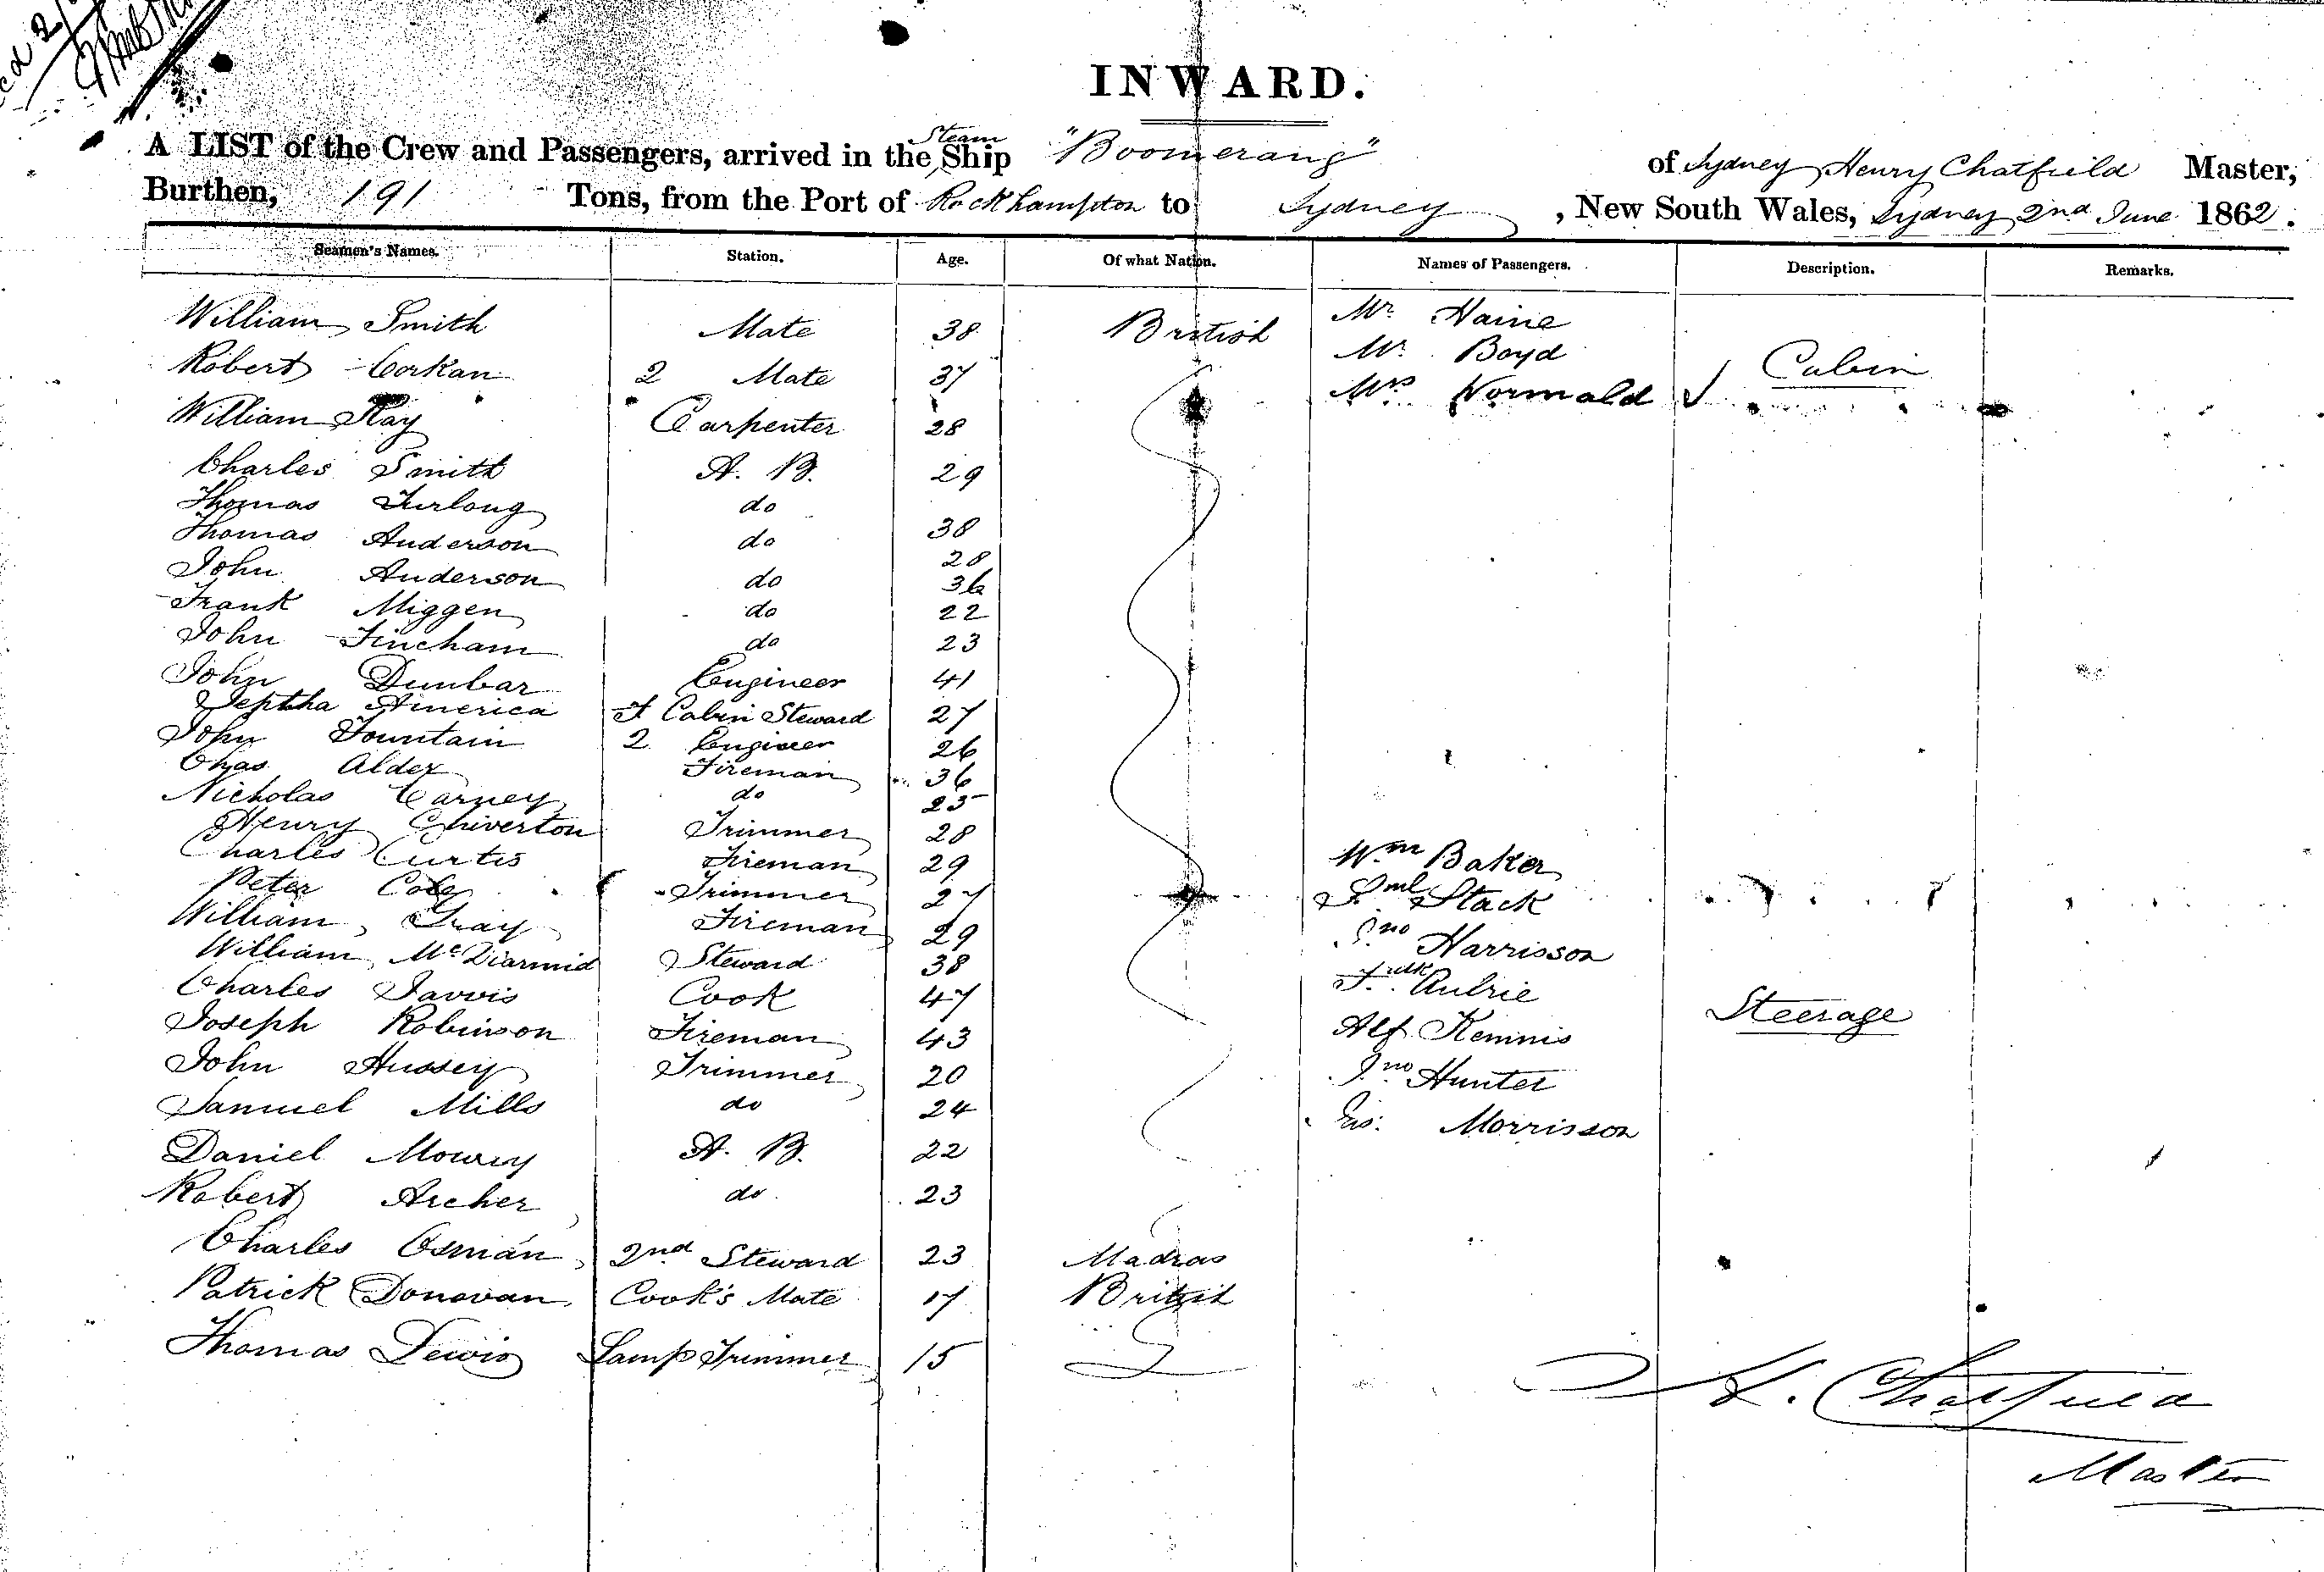 INWARD.
A LIST of the Crew and Passengers, arrived in the Steam Ship "Boomerang" of Sydney, Henry Chatfield Master,
Burthen, 191 Tons, from the Port of Rockhampton to Sydney, New South Wales, Sydney 2nd June 1862.
Seamen's Names. Station. Age. Of what Nation. Names of Passengers. Description. Remarks.
William Smith Mate 38 British Mr. Haine
Robert Corkan 2 Mate 37 Mr. Boyd Cabin
William Hay Carpenter 28 Mrs Wormald
Charles Smith A. B. 29
Thomas Furlong do 38
Thomas Anderson do 28
John Anderson do 36
Frank Miggen do 22
John Fincham do 23
John Dunbar Engineer 41
Jeptha America F Cabin Steward 27
John Fountain 2 Engineer 26
Chas Alder Fireman 36
Nicholas Carney do 25
Henry Chiverton Trimmer 28
Charles Curtis Fireman 29 Wm Baker
Peter Trimmer 27 Saml Stack
William Gray Fireman 29 Jno Harrisson
William McDiarmid Steward 38 Fredk Aubrie
Charles Jarvis Cook 47 Steerage
Joseph Robinson Fireman 43 Alf Kemnis
John Hussey Trimmer 20 Jno Hunter
Samuel Mills do 24 Jas. Morrisson
Daniel Mowry A. B. 22
Robert Archer do 23
Charles Osman 2nd Steward 23 Madras
Patrick Donovan Cook's Mate 17 British
Thomas Lewis Lamp Trimmer 15
H. Chatfield
Master